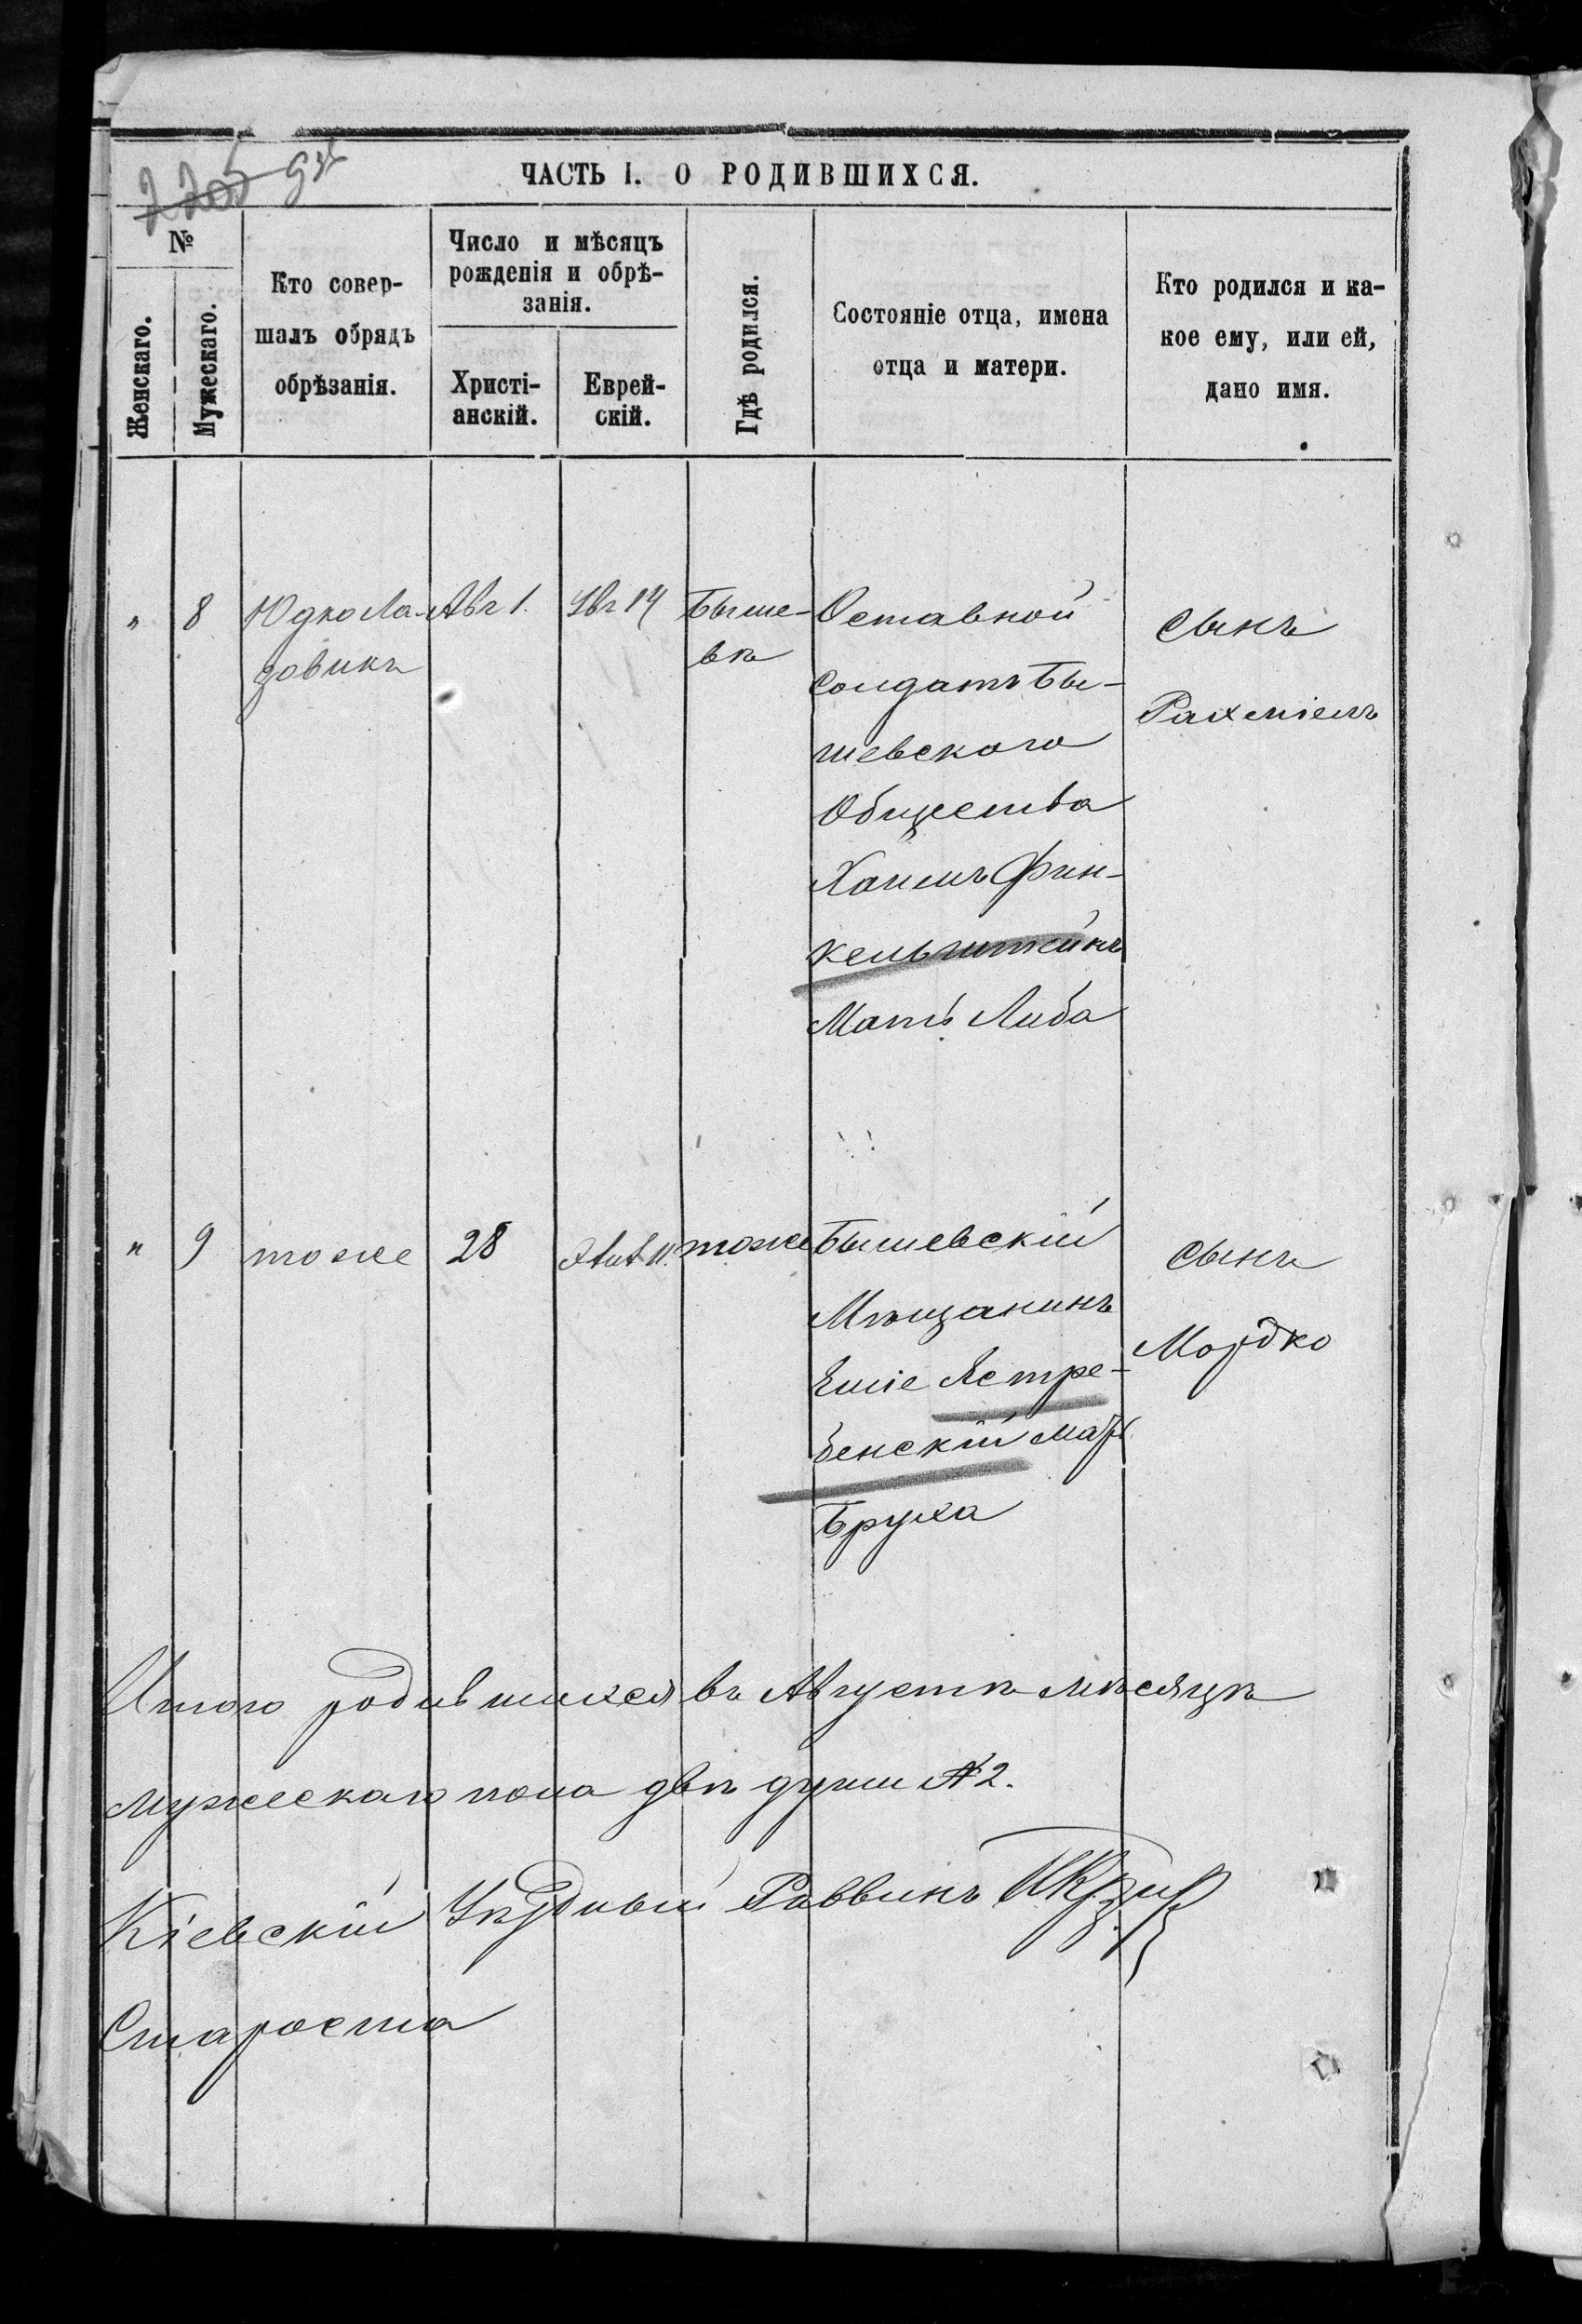 ЧАСТЬ I. О РОДИВШИХСЯ.
№
Женскаго.
Мужескаго.
Кто совер-
шалъ обрядъ
обрѣзанія.
Число и мѣсяцъ
рожденія и обрѣ-
занія.
Христі-
анскій.
Еврей-
скій.
Гдѣ родился.
Состояніе отца, имена
отца и матери.
Кто родился и ка-
кое ему, или ей,
дано имя.
" 8
Юдко Ла-
зовикъ
Авг 1.
Быше-
вѣ
Оставной
Солдатъ Бы-
шевского
Общества
Хаимъ Фин-
кельштейнъ
Мать Либа
Сынъ
Рахміелъ
" 9
тоже
28
тоже
Бышевскій
Мѣщанинъ
Ястре-
бенскій мать
Бруха
Сынъ
Мордко
Итого родившихся въ Августѣ мѣсяцѣ
мужескаго пола двѣ души № 2.
Кіевскій Уѣздный Раввинъ
Староста